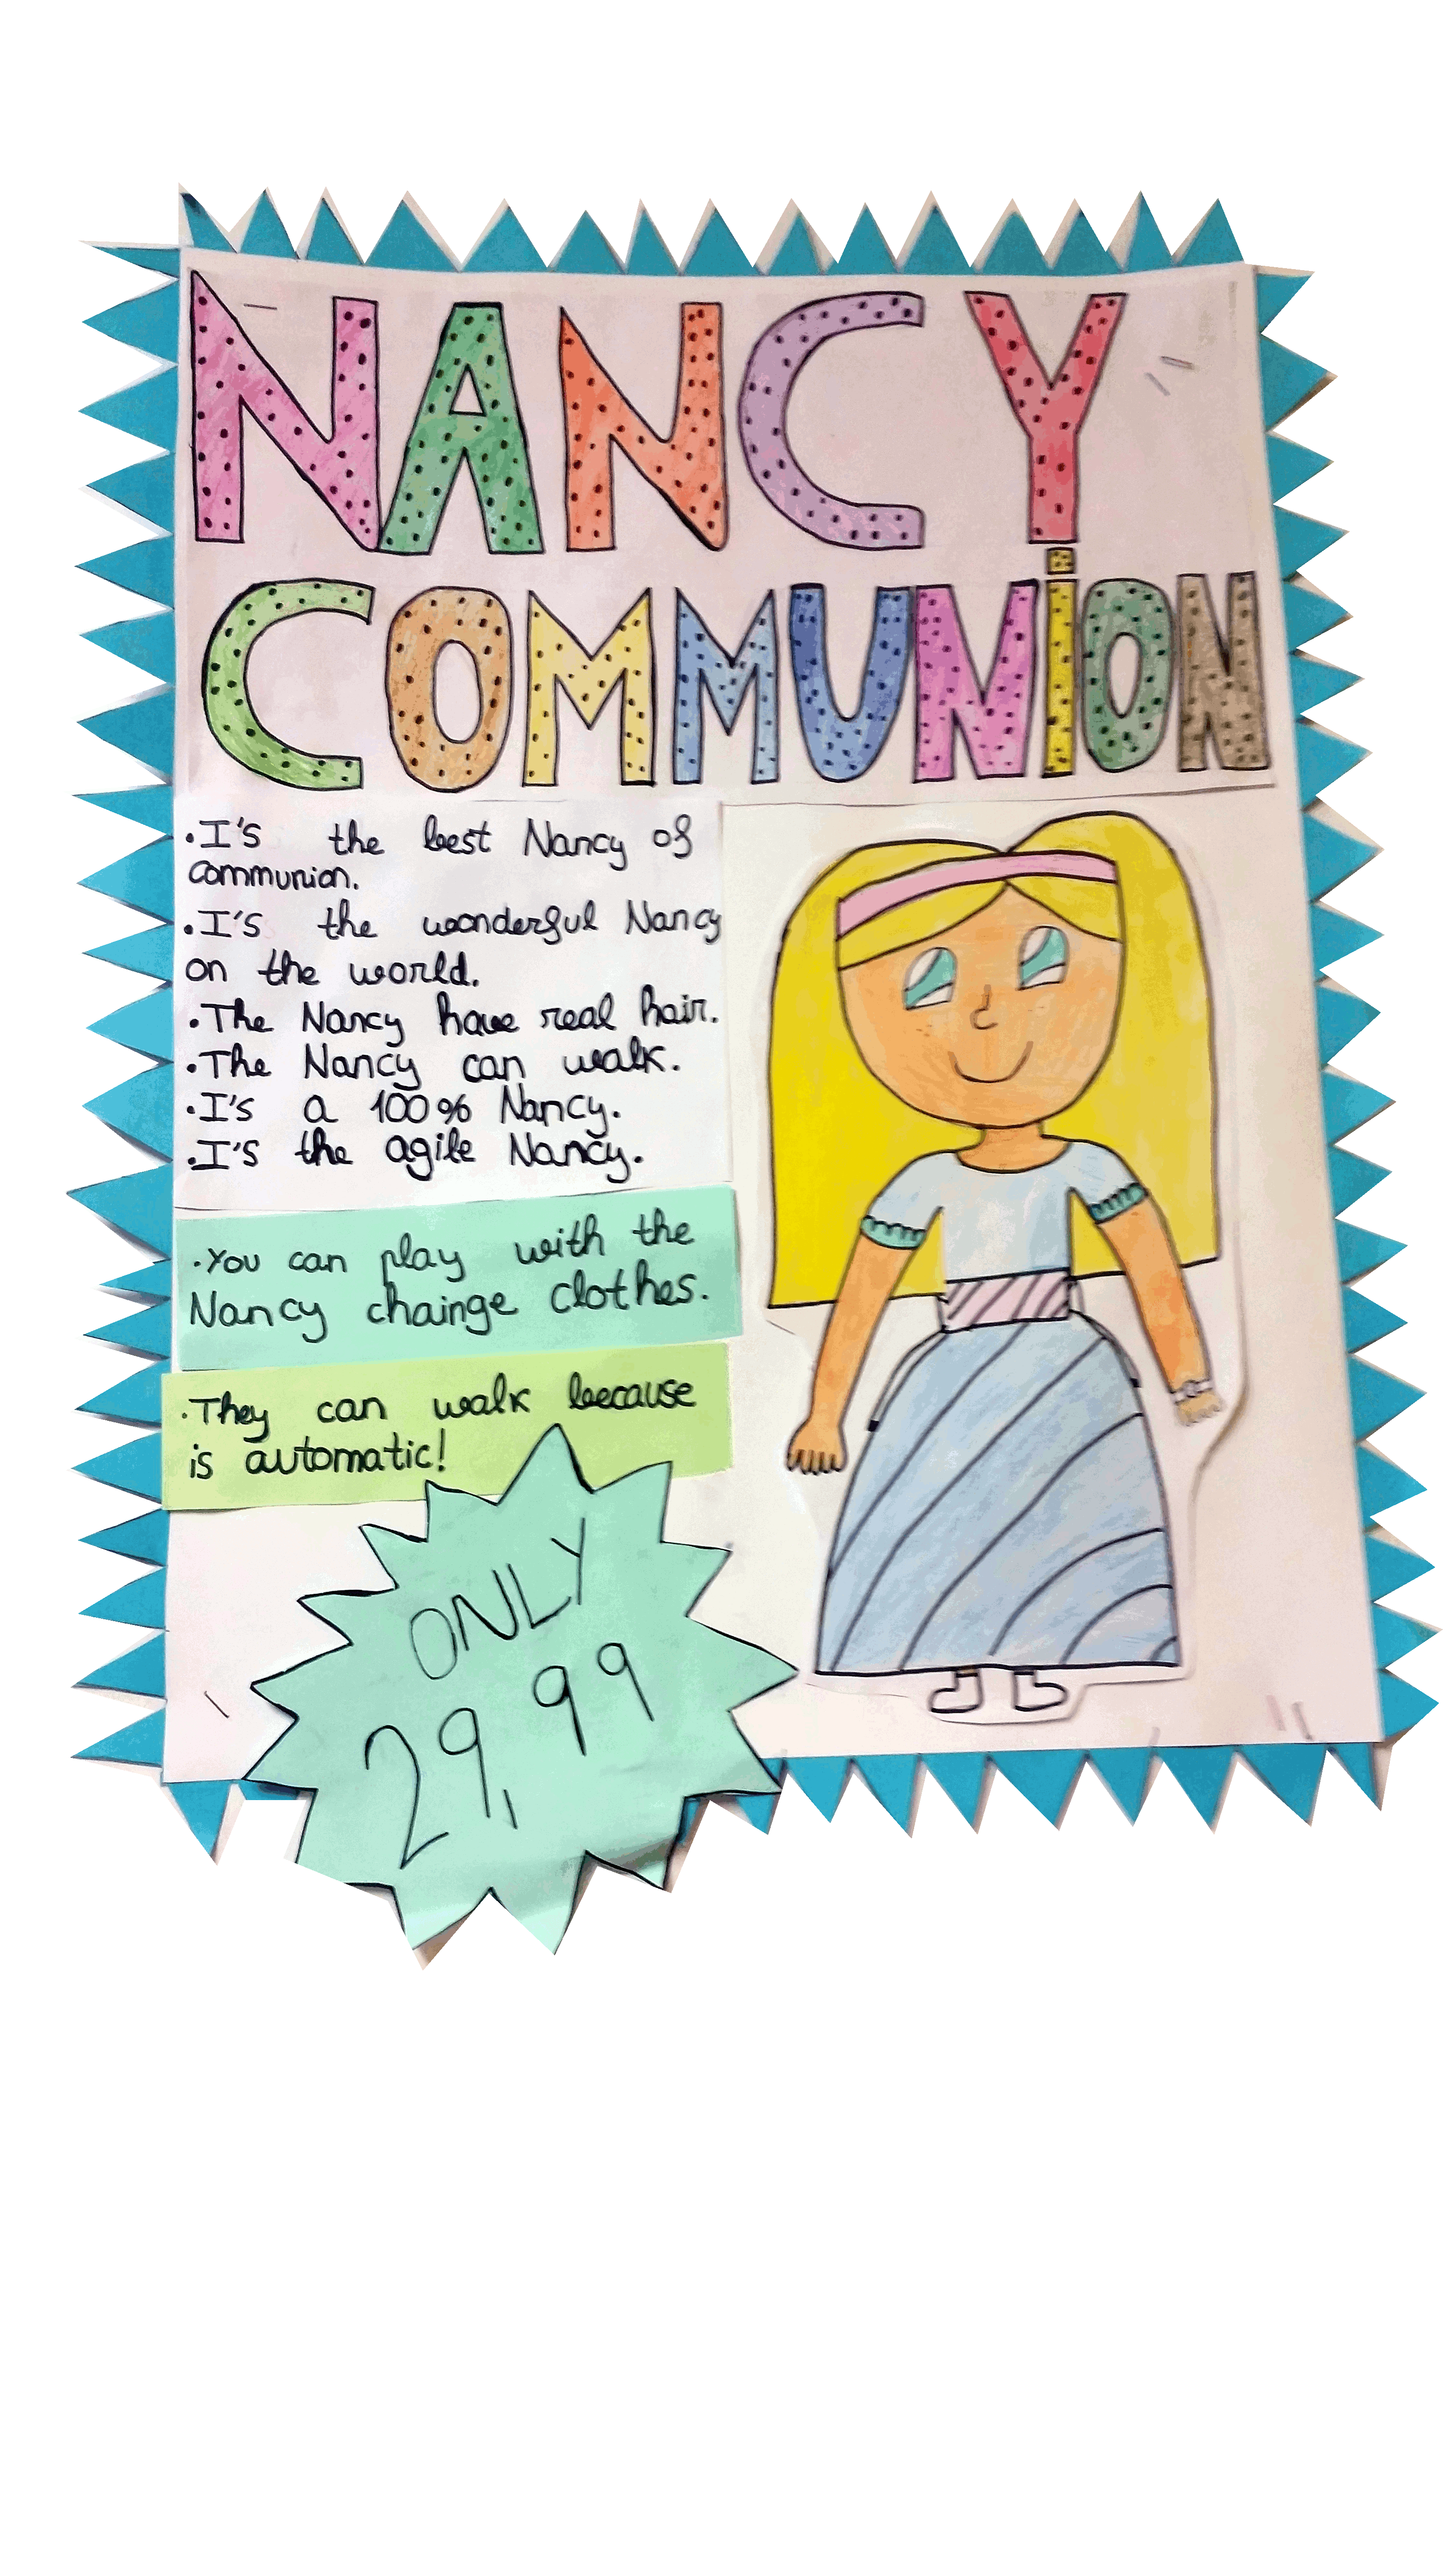 NANCY
COMMUNiON
•I's the best Nancy of
communion.
•I's the wonderful Nancy
on the world.
•The Nancy have real hair.
•The Nancy can walk.
•I's a 100% Nancy.
•I's the agile Nancy.
•You can play with the
Nancy chainge clothes.
•They can walk because
is automatic!
ONLY
29,99